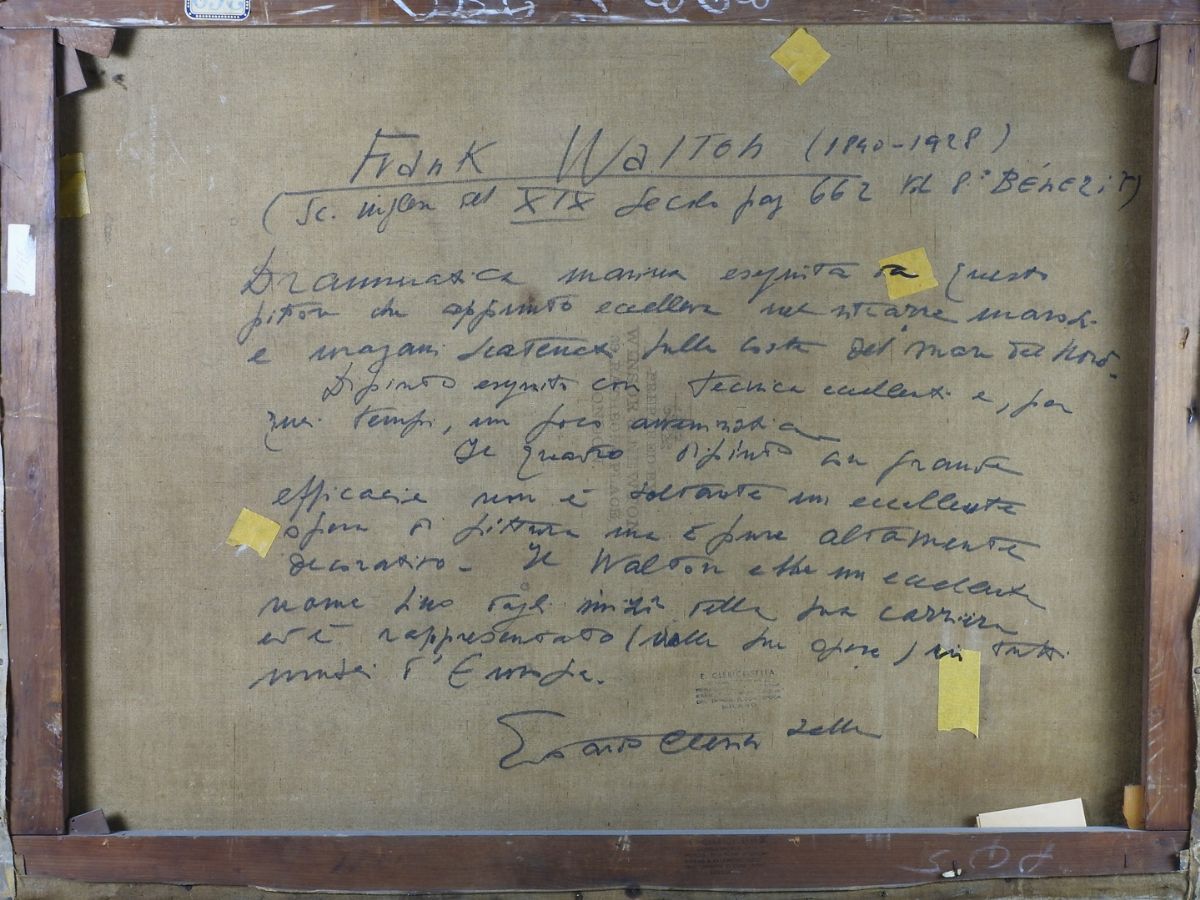 Frank Walton (1840-1928)
(Sc. inglese del XIX secolo pag 662 Vol 8° BÉNÉZIT)
Drammatica marina eseguita da questo
pittore che appunto eccelleva nel ritrarre
e uragani scatenati sulle coste del mare del Nord.
Dipinto eseguito con tecnica eccellente e, per
quei tempi, un poco
Il quadro dipinto con grande
efficacia non è soltanto un eccellente
opera di pittura ma è pure altamente
decorativo. Il Walton ebbe un eccellente
nome sino dagli inizi della sua carriera
ed è rappresentato (nelle sue opere) in tutti
musei d'Europa.
E. CLERICI SELLA
MILANO
PREPARED BY
WINSOR & NEWTON
LONDON
S.D.A